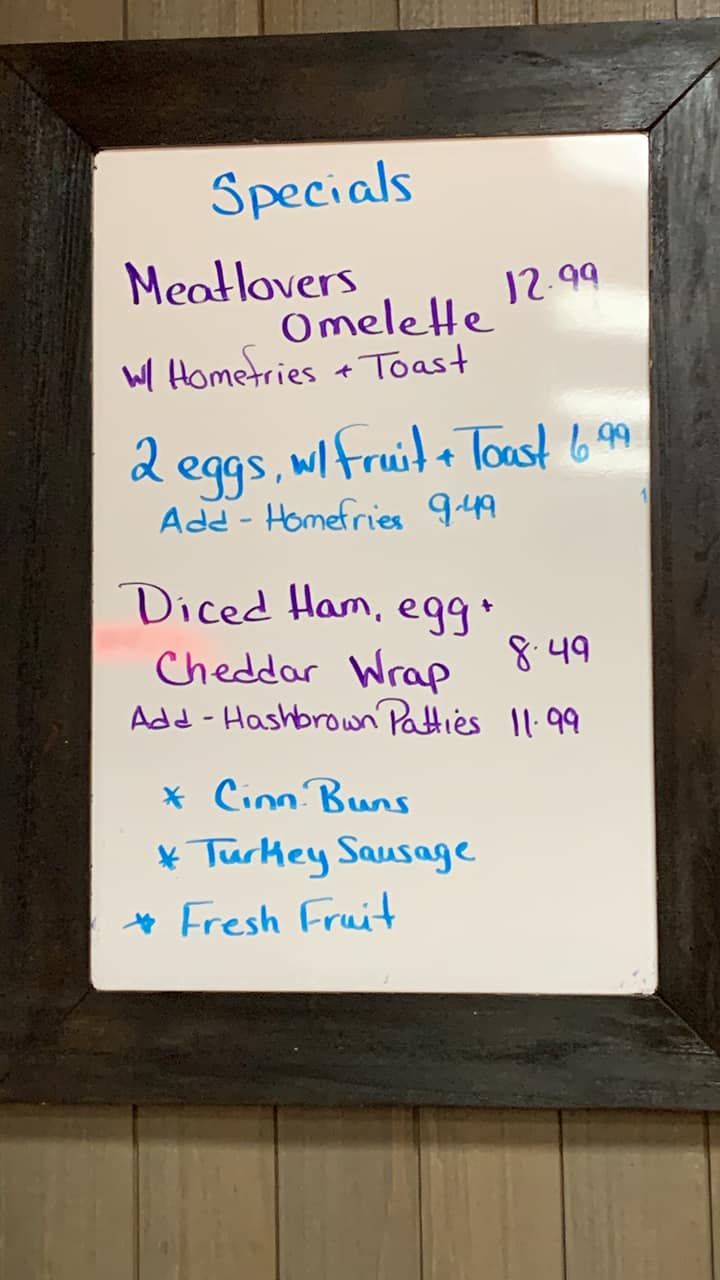 Specials
Meatlovers 12.99
Omelette
W/ Homefries + Toast
2 eggs, w/ fruit + Toast 6.99
Add - Homefries 9.49
Diced Ham, egg +
Cheddar Wrap 8.49
Add - Hashbrown Patties 11.99
* Cinn. Buns
* Turkey Sausage
* Fresh Fruit